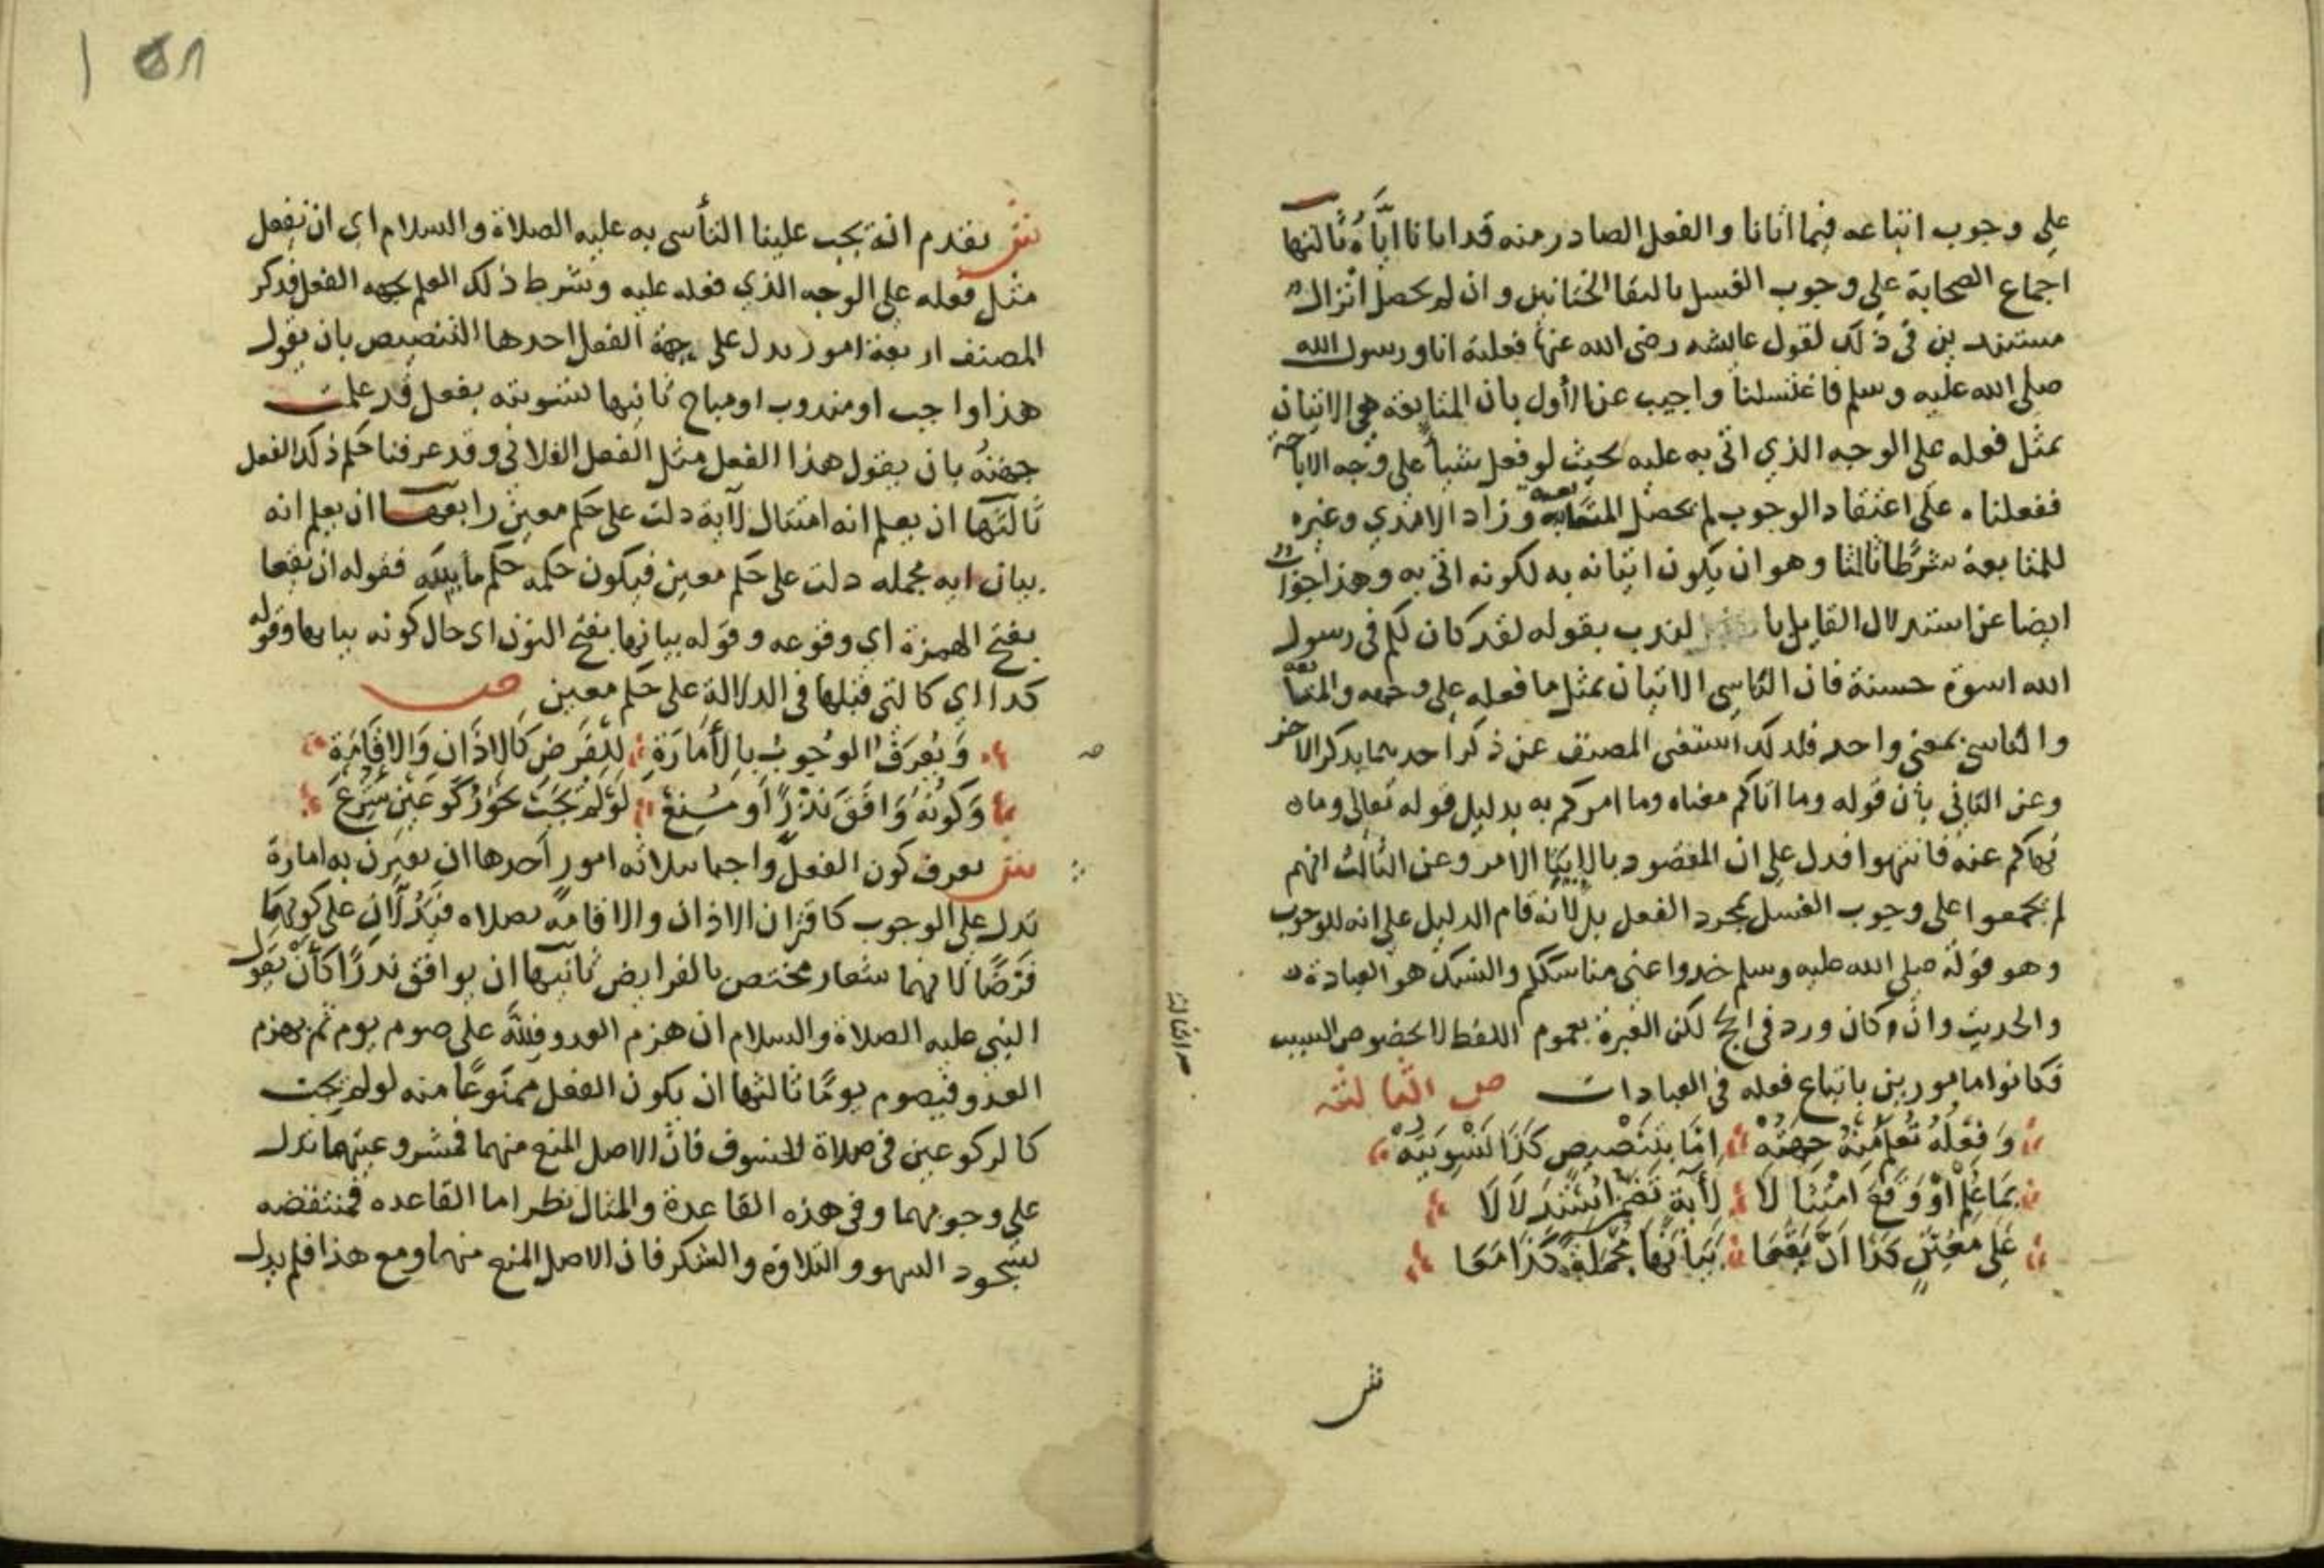 علي وجوب اتباعه فيما اتانا والفعل الصادر منه قد اتانا اياه ثالثها
اجماع الصحابة علي وجوب الغسل بالتقا الختانين وان لم يحصل انزال
مستندين في ذلك لقول عايشه رضي الله عنها فعلته انا ورسول الله
صلي الله عليه وسلم فاغتسلنا واجيب عن الأول بان المتابعة هي الاتيان
بمثل فعله علي الوجه الذي اتي به عليه بحيث لو فعل شيأ علي وجه الاباحة
ففعلناه علي اعتقاد الوجوب لم يحصل المتابعة وزاد الامدي وغيره
للمتابعة شرطا ثالثا وهو ان يكون اتيانه به لكونه اتي به وهذا جواب
ايضا عن استدلال القايل با لندب بقوله لقد كان لكم في رسول
الله اسوة حسنة فان التاسي الاتيان بمثل ما فعله علي وجهه والمتابعة
والتاسي بمعني واحد فلذلك استغني المصنف عن ذكر احدهما بذكر الاخر
وعن الثاني بأن قوله وما اتاكم معناه وما امركم به بدليل قوله تعالي وما
نهاكم عنه فانتهوا فدل علي ان المقصود بالإيتا الامر وعن الثالث انهم
لم يجمعوا علي وجوب الغسل بمجرد الفعل بل لانه قام الدليل علي انه للوجوب
وهو قوله صلي الله عليه وسلم خذوا عني مناسككم والنسك هو العبادة
والحديث وان كان ورد في الحج لكن العبرة بعموم اللفظ لا بخصوص السبب
فكانوا مامورين باتباع فعله في العبادات ص الثالثه
وَفِعْلُهُ تُعْلَمُ مِنْهُ جِهَتُهْ إمَّا بِتَنْصِيصٍ كَذَا تَسْوِيَتُهْ
بِمَا عُلِمْ أوْ وَقَعَ امْتِثَالَا لِأَيَةٍ تَضَمَّ اسْتِدْلَالَا
عَلَي مُعَيَّنٍ كَذَا اَنْ يَقَعَا بَيَانَهَا مُجْمَلَةً كَذَا مَعَا
ش
ش تقدم انه يجب علينا التأسي به عليه الصلاة والسلام اي ان نفعل
مثل فعله علي الوجه الذي فعله عليه وشرط ذلك العلم بجهه الفعل فذكر
المصنف اربعة امور تدل علي جهة الفعل احدها التنصيص بان يقول
هذا واجب او مندوب او مباح ثانيها تسويته بفعل قد علمت
جهته بان يقول هذا الفعل مثل الفعل الفلاني وقد عرفنا حكم ذلك الفعل
ثالثها ان يعلم انه امتثال لآية دلت علي حكم معين رابعها ان يعلم انه
بيان ايه مجمله دلت علي حكم معين فيكون حكمه حكم ما بينته فقوله ان يقعا
بفتح الهمزة اي وقوعه وقوله بيانها بفتح النون اي حال كونه بيانها وقوله
كذا اي كالتي قبلها في الدلالة علي حكم معين ص
وَيُعْرَفُ الْوُجُوبُ بِالْأَمَارَةِ لِلْفَرْضِ كَالاذَانِ وَالاقَامَةِ
وَكَوْنُهُ وَافَقَ نَذْرًا أَو مُنِعْ لَوْ لَمْ يَجِبْ نَحْوُ رُكُوعَيْنِ شُرِعْ
ش يعرف كون الفعل واجبا بثلاثه امور أحدها ان يقترن به امارة
تدل علي الوجوب كاقتران الاذان والاقامة بصلاه فيدلان علي كونها
فرضًا لانهما شعار مختص بالفرايض ثانيها ان يوافق نذرًا كأن يقول
النبي عليه الصلاة والسلام ان هزم العدو فللّه علي صوم يوم ثم يهزم
العدو فيصوم يومًا ثالثها ان يكون الفعل ممنوعًا منه لو لم يجب
كالركوعين في صلاة الخسوف فان الاصل المنع منهما فمشروعيتهما تدل
علي وجوبهما وفي هذه القاعدة والمثال نظر اما القاعده فمنتقضه
بسجود السهو والتلاوة والشكر فان الاصل المنع منهما ومع هذا فلم يدل